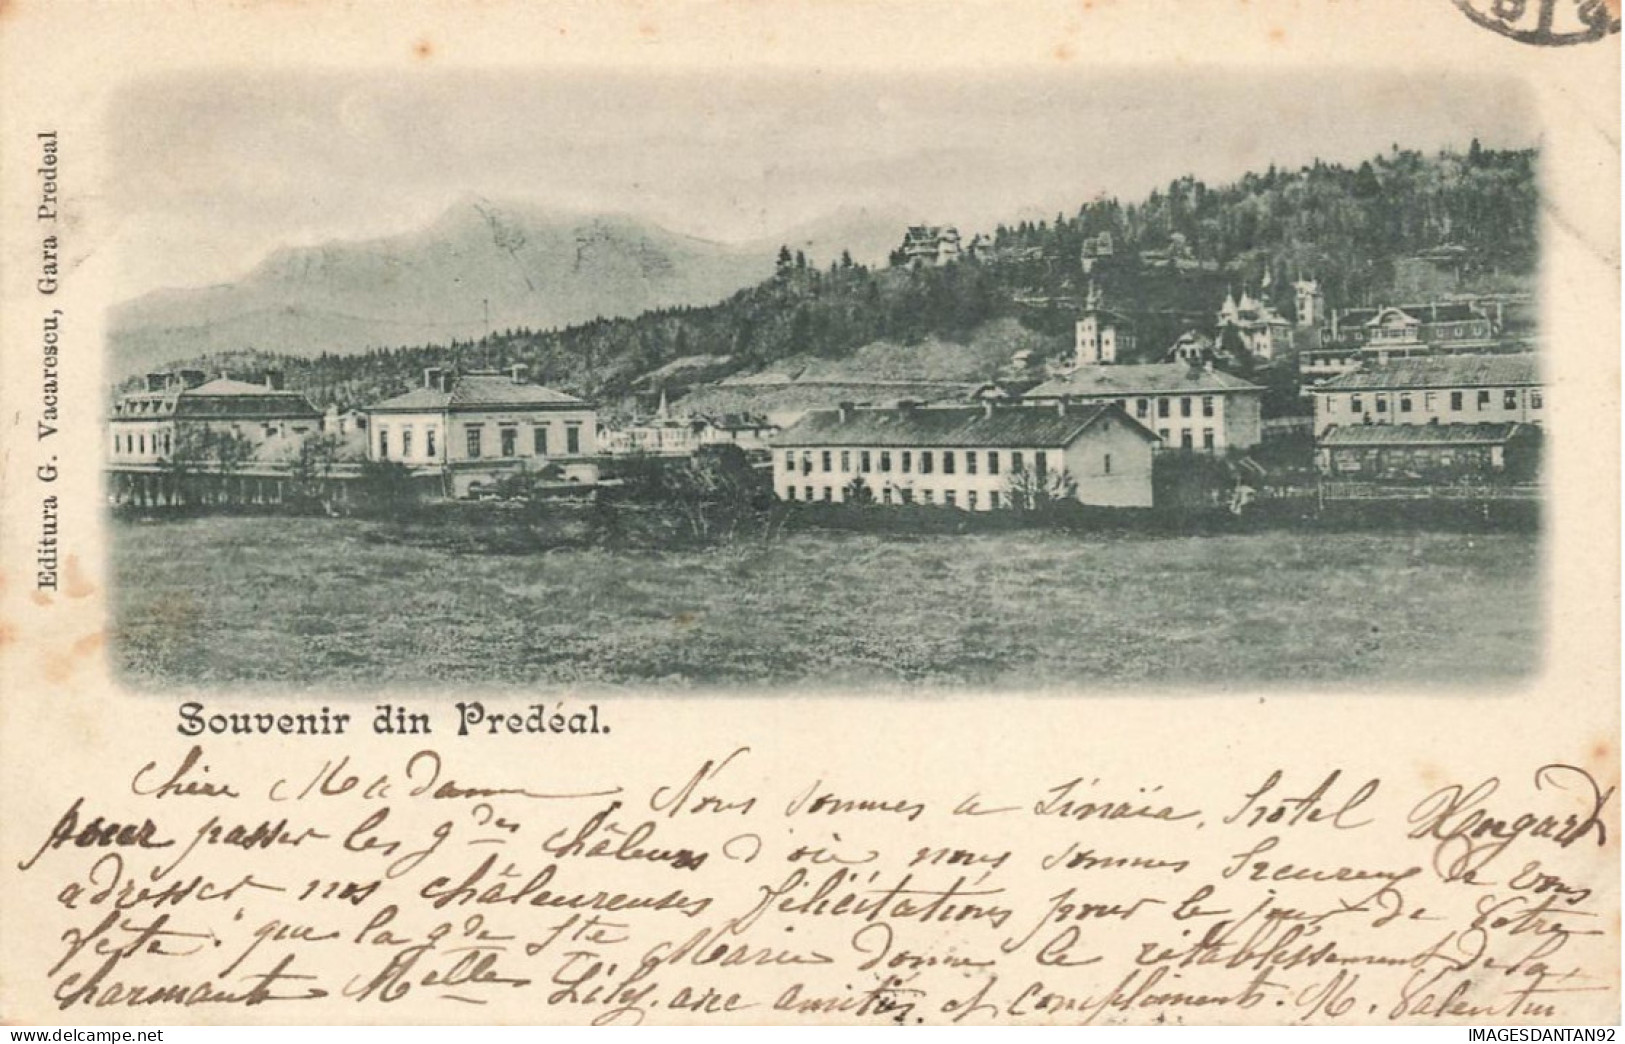 Editura G. Vacarescu, Gara Predeal
Souvenir din Predéal.
Chère Madame Nous sommes a Sinaïa, hotel
pour passer les gdes châleurs d'où nous sommes heureux de vous
adresser nos châleureuses félicitations pour le jour de Votre
fête. que la gde Ste Marie donne le rétablissement de la
charmante Melle Lily. avec amitiés et compliments. M. Valentin
www.delcampe.net
IMAGESDANTAN92